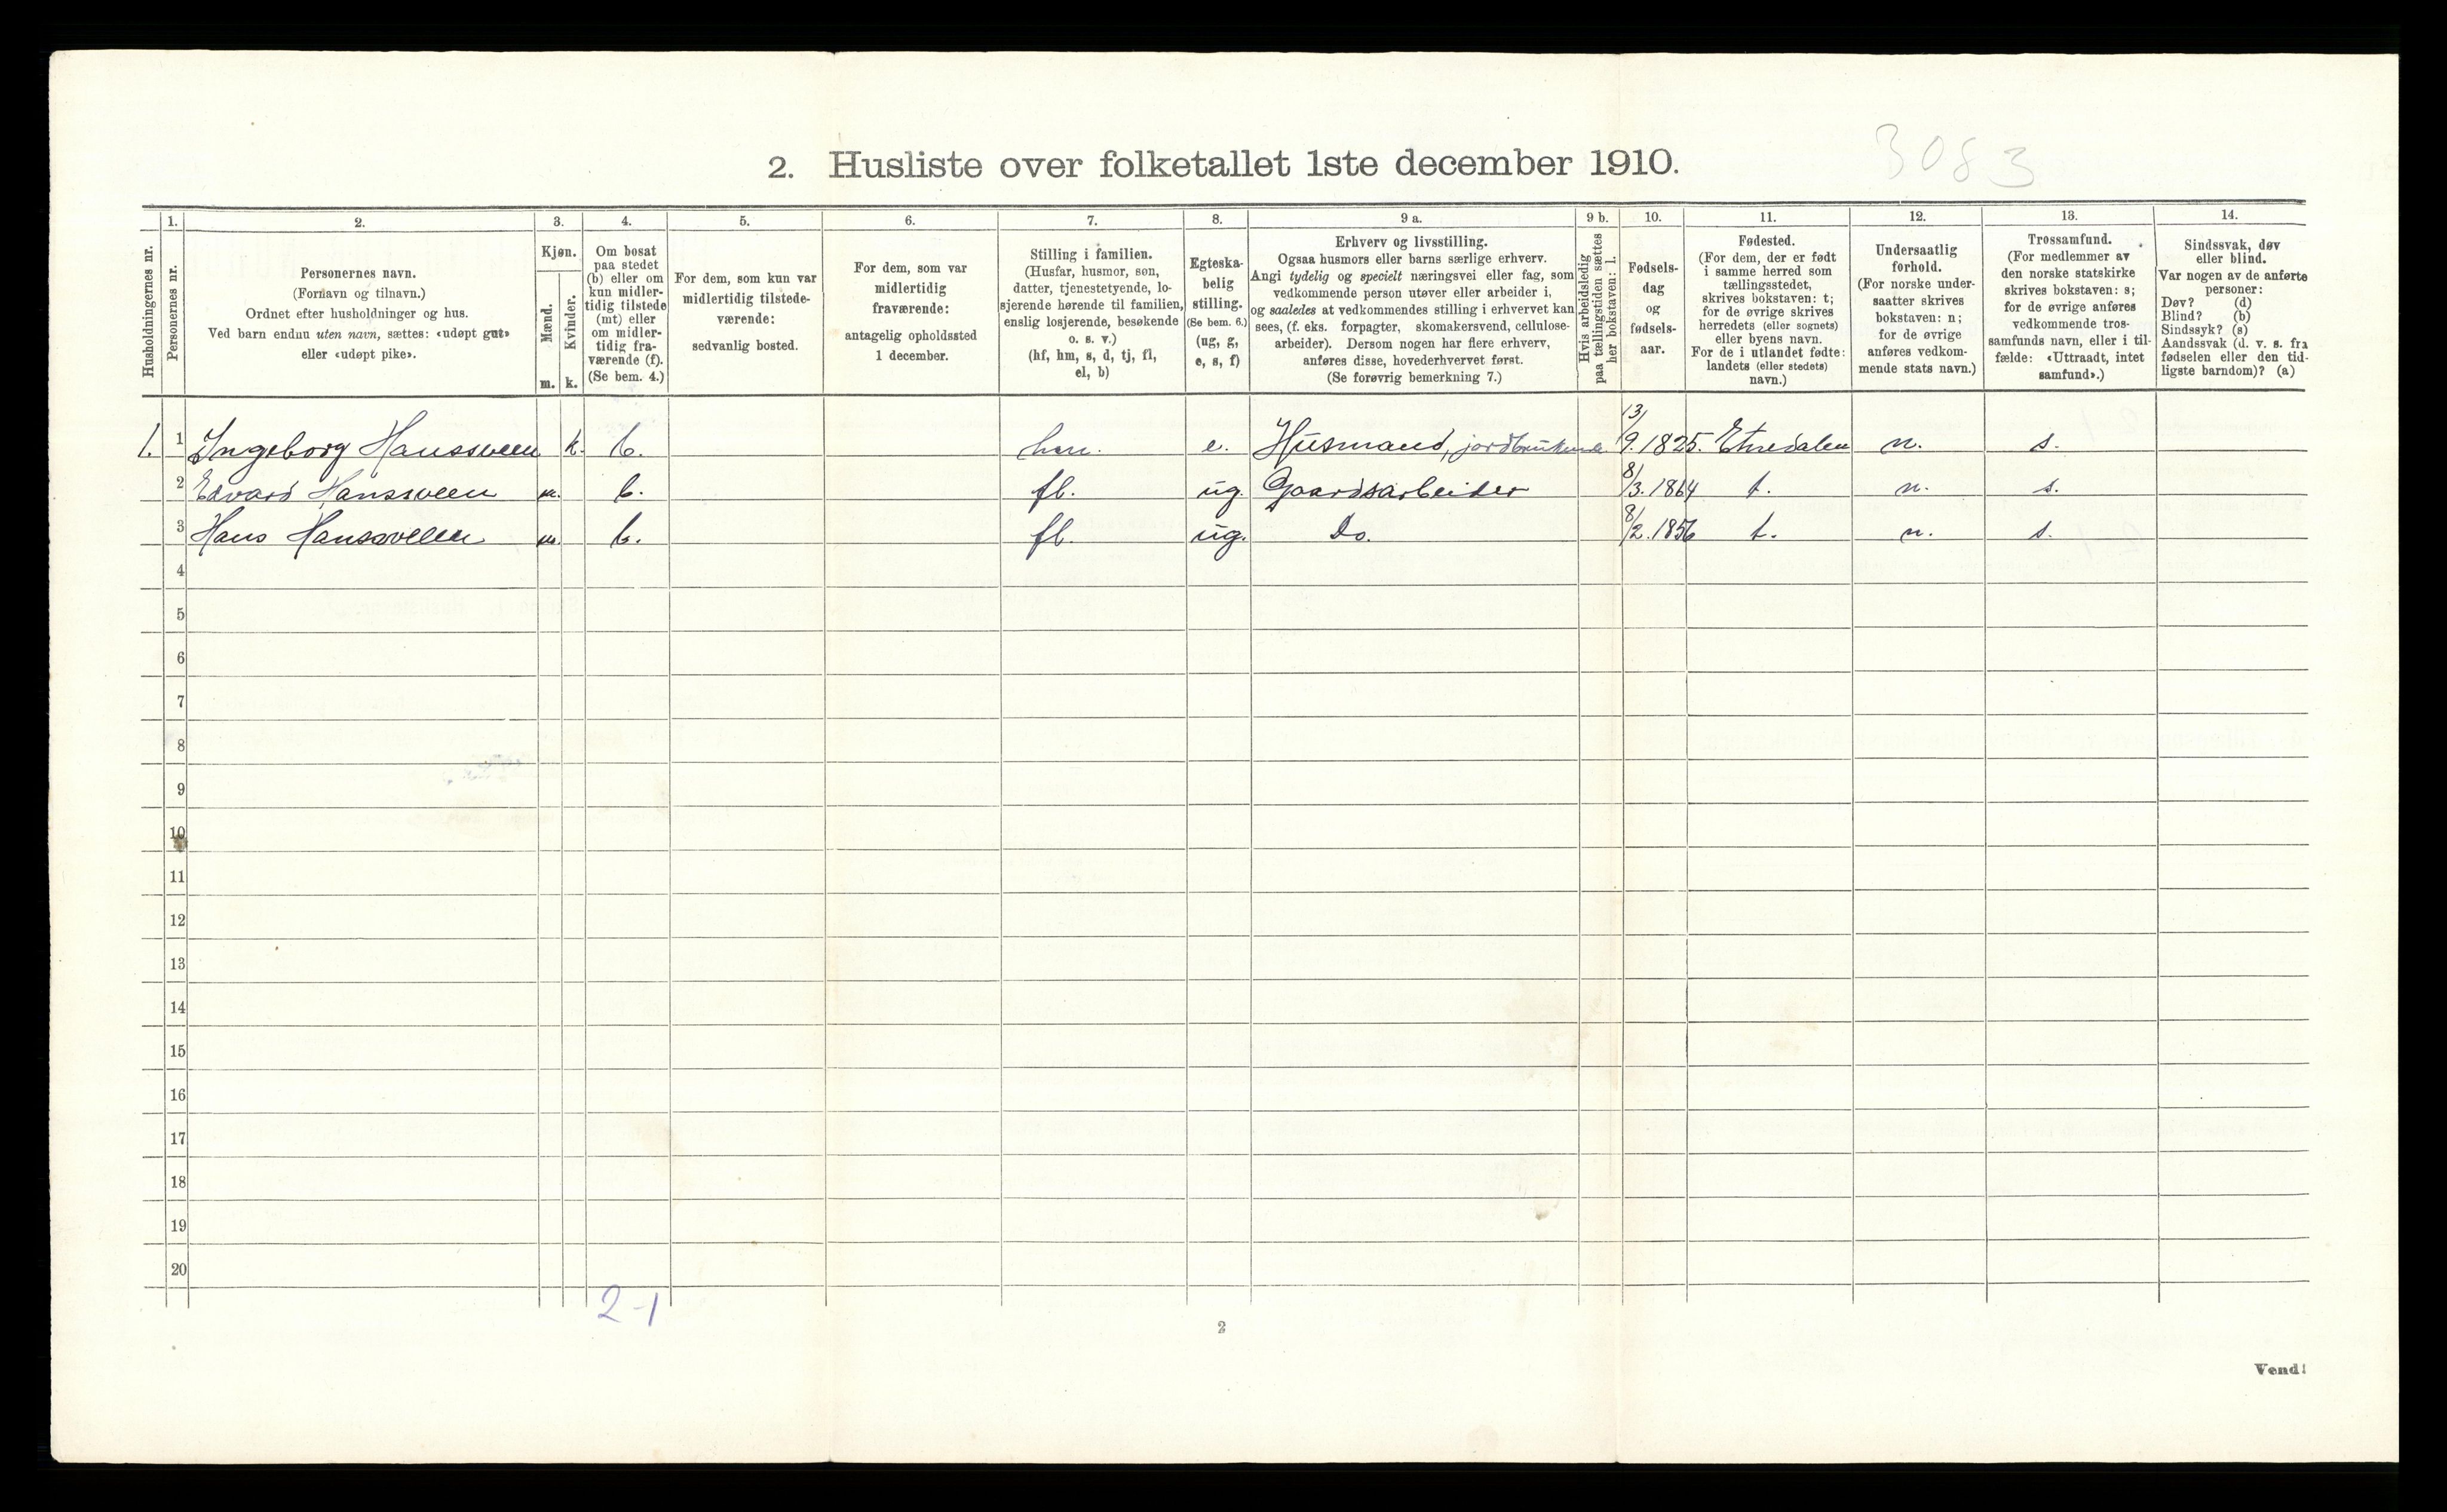 3083
2. Husliste over folketallet 1ste december 1910.
Husholdningernes nr.
1.
Personernes nr.
2.
Personernes navn.
(Fornavn og tilnavn.)
Ordnet efter husholdninger og hus.
Ved barn endnu uten navn, sættes: «udøpt gut»
eller «udøpt pike».
3.
Kjøn.
Mænd.
m.
Kvinder.
k.
4.
Om bosat
paa stedet
(b) eller om
kun midler-
tidig tilstede
(mt) eller
om midler-
tidig fra-
værende (f).
(Se bem. 4.)
5.
For dem, som kun var
midlertidig tilstede-
værende:
sedvanlig bosted.
6.
For dem, som var
midlertidig
fraværende:
antagelig opholdssted
1 december.
7.
Stilling i familien.
(Husfar, husmor, søn,
datter, tjenestetyende, lo-
sjerende hørende til familien,
enslig losjerende, besøkende
o. s. v.)
(hf, hm, s, d, tj, fl,
el, b)
8.
Egteska-
belig
stilling.
(Se bem. 6.)
(ug, g,
e, s, f)
9 a.
Erhverv og livsstilling.
Ogsaa husmors eller barns særlige erhverv.
Angi tydelig og specielt næringsvei eller fag, som
vedkommende person utøver eller arbeider i,
og saaledes at vedkommendes stilling i erhvervet kan
sees, (f. eks. forpagter, skomakersvend, cellulose-
arbeider). Dersom nogen har flere erhverv,
anføres disse, hovederhvervet først.
(Se forøvrig bemerkning 7.)
9 b.
Hvis arbeidsledig
paa tællingstiden sættes
her bokstaven: l.
10.
Fødsels-
dag
og
fødsels-
aar.
11.
Fødested.
(For dem, der er født
i samme herred som
tællingsstedet,
skrives bokstaven: t;
for de øvrige skrives
herredets (eller sognets)
eller byens navn.
For de i utlandet fødte:
landets (eller stedets)
navn.)
12.
Undersaatlig
forhold.
(For norske under-
saatter skrives
bokstaven: n;
for de øvrige
anføres vedkom-
mende stats navn.)
13.
Trossamfund.
(For medlemmer av
den norske statskirke
skrives bokstaven: s;
for de øvrige anføres
vedkommende tros-
samfunds navn, eller i til-
fælde: «Uttraadt, intet
samfund».)
14.
Sindssvak, døv
eller blind.
Var nogen av de anførte
personer:
Døv? (d)
Blind? (b)
Sindssyk? (s)
Aandssvak (d. v. s. fra
fødselen eller den tid-
ligste barndom)? (a)
1. 1 Ingeborg Hanssveen k. b. hm. e. Husmand, jordbrukende 13/9.1825. Etnedalen n. s.
2 Edvard Hanssveen m. b. fl. ug. Gaardsarbeider 8/3.1864 t. n. s.
3 Hans Hanssveen m. b. fl. ug. Do. 8/2.1856 t. n. s.
4
5
6
7
8
9
10
11
12
13
14
15
16
17
18
19
20
2-1
2
Vend!